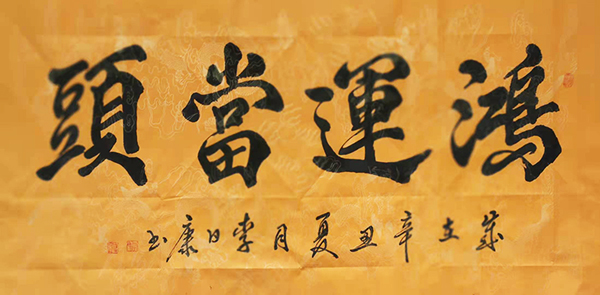 鴻運當頭
歲在辛丑夏月李日康书